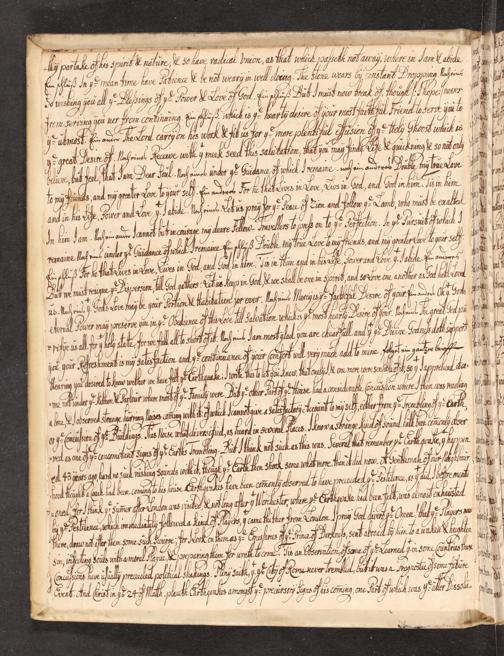 -lly partake of his spirit & nature, & so have radical Union, as that which passeth not away, where in I am & abide
Ein schluß In yᵉ mean time have Patience & be not weary in well doing. The stone wears by constant Dropping
so wishing you all yᵉ Blessings of yᵉ Power & Love of God. Ein schluß But I must now break of though I hope never
from serving you nor from continuing. Ein schluß which is yᵉ hearty desire of your most faithful Friend to serve you to
yᵉ utmost. Ein andrer The Lord carry on his work & fit us for yᵉ more plentiful effusion of yᵉ Holy Ghost which is
yᵉ great Desire of. Receive with meek seed this salutation, that you may find Life & quickning & so not only
believe, but feel, that I am Dear Soul. under yᵉ Guidance of which I remaine. Double, my true Love
to my friends, and my greater Love to your self. Ein andrer For he that lives in Love, lives in God, and God in him. Tis in him
and in his Life, Power and Love I abide. Let us pray for yᵉ Peace of Zion and follow yᵉ Lamb, who must be exalted
In him I am. I cannot but incourage my deare Fellow-Travellers to press on to yᵉ Perfection. In yᵉ Pursuit of which I
remaine. under yᵉ Guidance of which I remaine. Ein schluß Double, my True Love to my friends, and my greater Love to your self.
Ein schluß For he that Lives in Love, Lives in God, and God in him. Tis in Him and in his Life Power and Love I abide.
But we must resigne yᵉ Dispersion, till God gathers. Let us keep in God, & we shall be one in spirit, and so Love one another as God hath Loved
us. yᵉ Gods Love may be your Portion & Habitation for ever. Marcy is yᵉ faithful Desire of your Oh yᵉ Gods
eternal Power may preserve you in yᵉ Obedience of his Love till Salvation which is yᵉ most hearty Desire of your In great God pu-
-rifie us all for holy state, for we fall all to short of it. I am most glad you are chearfull and yᵉ Divine Goodness doth support
you, your Refreshment is my satisfaction, and yᵉ continuance of your comfort will very much add to mine.
Hearing you desired to know whether we have felt yᵉ Earthquake, I write this to let you know, that only I & one more were sensible of it, so I apprehend
me not under yᵉ Kitchen & Parlour where most of yᵉ Family were But yᵉ other Part of yᵉ House had a considerable Concussion where I then was musing
alone, & observed strange jarring Noises coming with it of which I cannot gave a satisfactory Account to my self, either from yᵉ Trembling of yᵉ Earth,
or yᵉ Concussion of yᵉ Buildings. This Noise was diversified, as heard in several Places. I know a strange kind of sound hath been comonly obser-
-ved as one of yᵉ concomitant signes of yᵉ Earths Trembling. But I think not such as this was. Several that remember yᵉ Earthquake, yᵗ happen-
-ed 43 years ago, heard no such rushing sounds with it, though yᵉ Earth then shook some what more, than it did now. A Gentleman of our Neighbour-
hood thought a Coach had been coming to his house. Earthquakes have been comonly observed to have preceeded yᵉ Pestilence, as it did,
I think yᵉ Summer after London was visited & not long after Worchester, where yᵉ Earthquake had been felt, was almost exhausted
by yᵉ Pestilence, which immediatly followed a kind of Players, yᵗ came thither from London. I pray God divert yᵉ Omen. That yᵉ Players now
there, draw not after them some such scourge, for I look on them as yᵉ Emissaries of yᵉ Prince of Darkness, sent abroad by him to awaken & heighten
sin, infecting souls with a moral Plague, & so preparing them for wrath to come. Tis an observation of some of yᵉ Learned, yᵗ in some Countries these
Concussions have usually preceeded political shakings. Pliny saith, yᵗ yᵉ City of Rome never trembled, but it was a Prognostic of some future
Event. And Christ in yᵉ 24 of Math. placeth Earthquakes amongst yᵉ precursory Signes of his coming, one Part of which was yᵉ utter Dissolu-